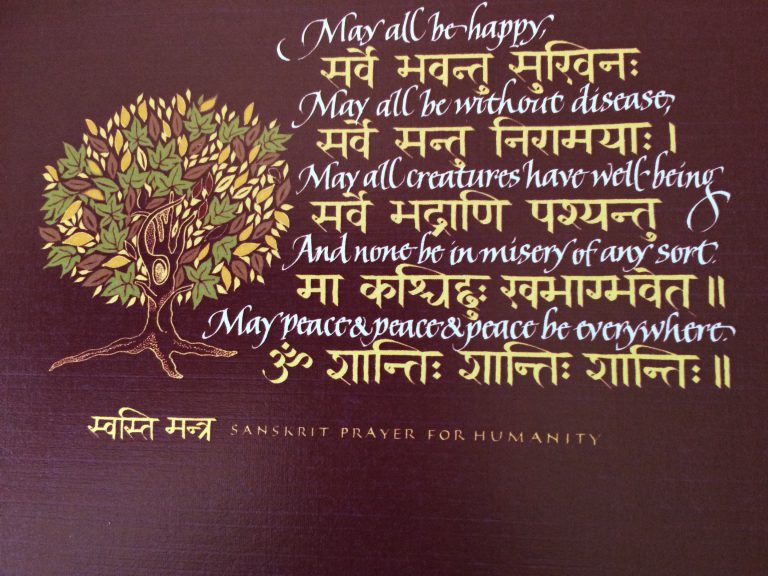 May all be happy,
सर्वे भवन्तु सुखिनः
May all be without disease,
सर्वे सन्तु निरामयाः ।
May all creatures have well-being
सर्वे भद्राणि पश्यन्तु
And none be in misery of any sort.
मा कश्चिद्दुःखभाग्भवेत ॥
May peace & peace & peace be everywhere.
ॐ शान्तिः शान्तिः शान्तिः ॥
स्वस्ति मन्त्र SANSKRIT PRAYER FOR HUMANITY